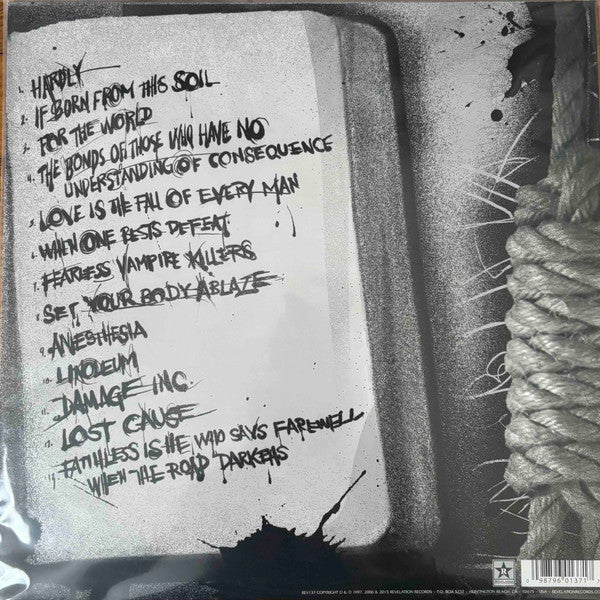 1. HARDLY
2. IF BORN FROM THIS SOIL
3. FOR THE WORLD
4. THE BONDS OF THOSE WHO HAVE NO
UNDERSTANDING OF CONSEQUENCE
5. LOVE IS THE FALL OF EVERY MAN
6. WHEN ONE BESTS DEFEAT
7. FEARLESS VAMPIRE KILLERS
8. SET YOUR BODY ABLAZE
9. ANESTHESIA
10. LINOLEUM
11. DAMAGE INC.
12. LOST CAUSE
13. FAITHLESS IS HE WHO SAYS FAREWELL
WHEN THE ROAD DARKENS
REV137 COPYRIGHT & © 1997, 2006 & 2015 REVELATION RECORDS - P.O. BOX 5232 - HUNTINGTON BEACH, CA - 92615 - USA - REVELATIONRECORDS.CO
0 98796 01371 7